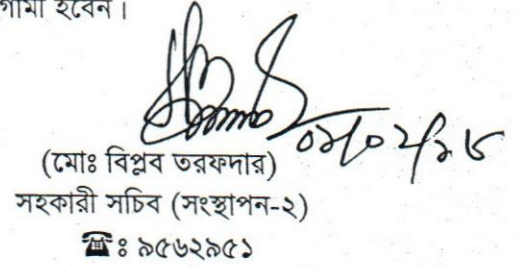 হবেন।
(মোঃ বিপ্লব তরফদার)
সহকারী সচিব (সংস্থাপন-২)
☎ঃ ৯৫৬২৯৫১